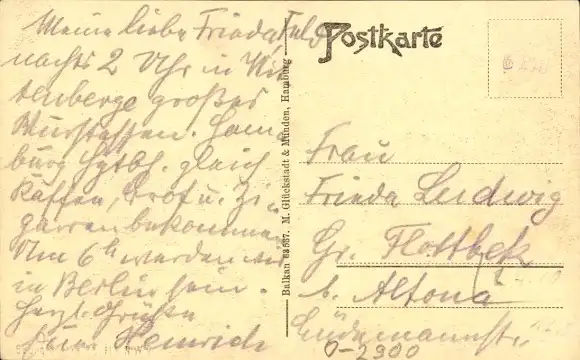 Meine liebe Frieda
nachts 2 Uhr in Wit-
tenberge großes
Wurstessen. Ham-
burg Hptbf. gleich
Kaffee, Brot u. Zi-
garren bekommen
Um 6h werden wir
in Berlin sein.
Herzl. Grüße
Dein Heinrich
Balkan 63537. M. Glückstadt & Münden, Hamburg
Postkarte
Frau
Frieda Ludwig
Gr. Flottbek
b. Altona
Lüdemannstr.
0-2900